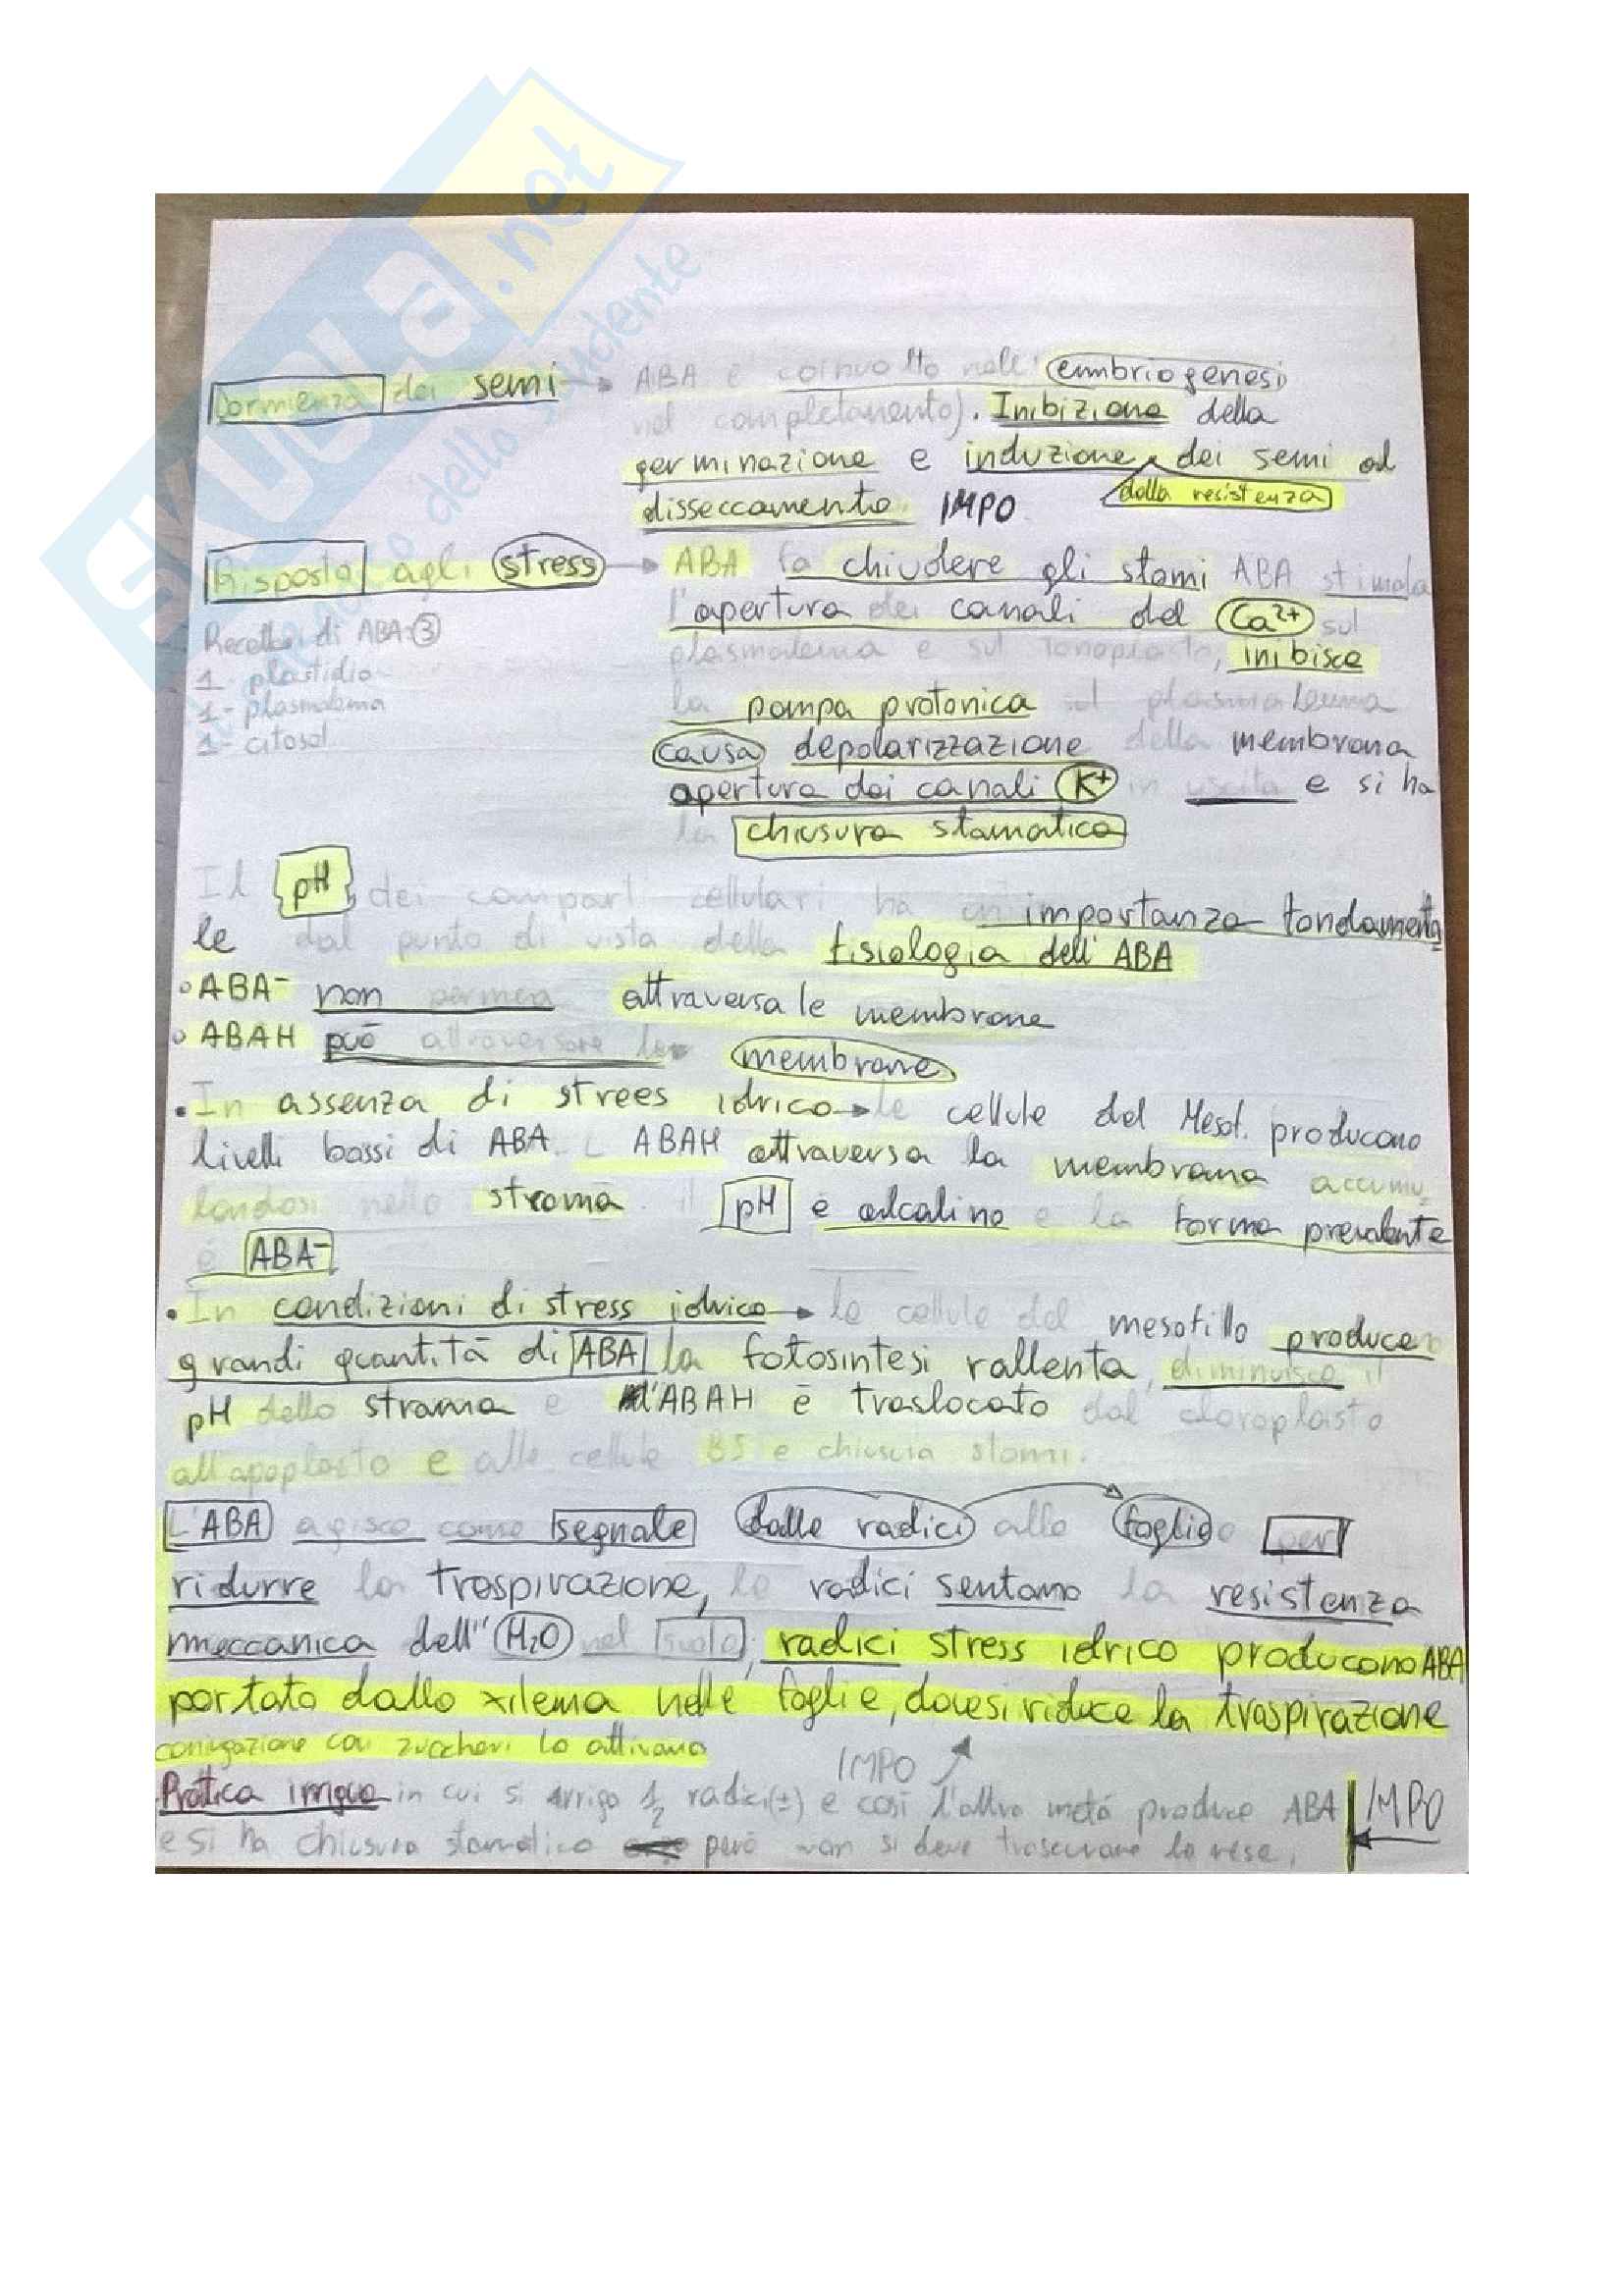 SKUOLA.net
dello studente
Dormienza dei semi → ABA è coinvolto nell'embriogenesi
nel completamento). Inibizione della
germinazione e induzione dei semi al
della resistenza
disseccamento IMPO
Risposta agli stress → ABA fa chiudere gli stomi ABA stimola
l'apertura dei canali del Ca²⁺ sul
plasmalema e sul tonoplasto, inibisce
la pompa protonica sul plasmalemma
causa depolarizzazione della membrana
apertura dei canali K⁺ in uscita e si ha
la chiusura stomatica
Recettori di ABA 3
1- plastidio
1- plasmalema
1- citosol
Il pH dei comparti cellulari ha un importanza fondamenta
le dal punto di vista della fisiologia dell'ABA
° ABA⁻ non permea attraversa le membrane
° ABAH può attraversare le membrane
• In assenza di strees idrico → le cellule del Mesof. producono
livelli bassi di ABA. L ABAH attraversa la membrana accumu
landosi nello stroma. il pH è alcalino e la forma prevalente
è ABA⁻
• In condizioni di stress idrico → le cellule del mesofillo producono
grandi quantità di ABA la fotosintesi rallenta, diminuisce il
pH dello stroma e l'ABAH è traslocato dal cloroplasto
all'apoplasto e alle cellule BS e chiusura stomi.
L'ABA agisce come segnale dalle radici alle foglie per
ridurre la traspirazione, le radici sentono la resistenza
meccanica dell'H₂O nel suolo, radici stress idrico producono ABA
portato dallo xilema nelle foglie, dove si riduce la traspirazione
coniugazione con zuccheri lo attivano
IMPO
Pratica irrigua in cui si irriga 1/2 radici(±) e così l'altra metà produce ABA IMPO
e si ha chiusura stomatica però non si deve trascurare la resa.